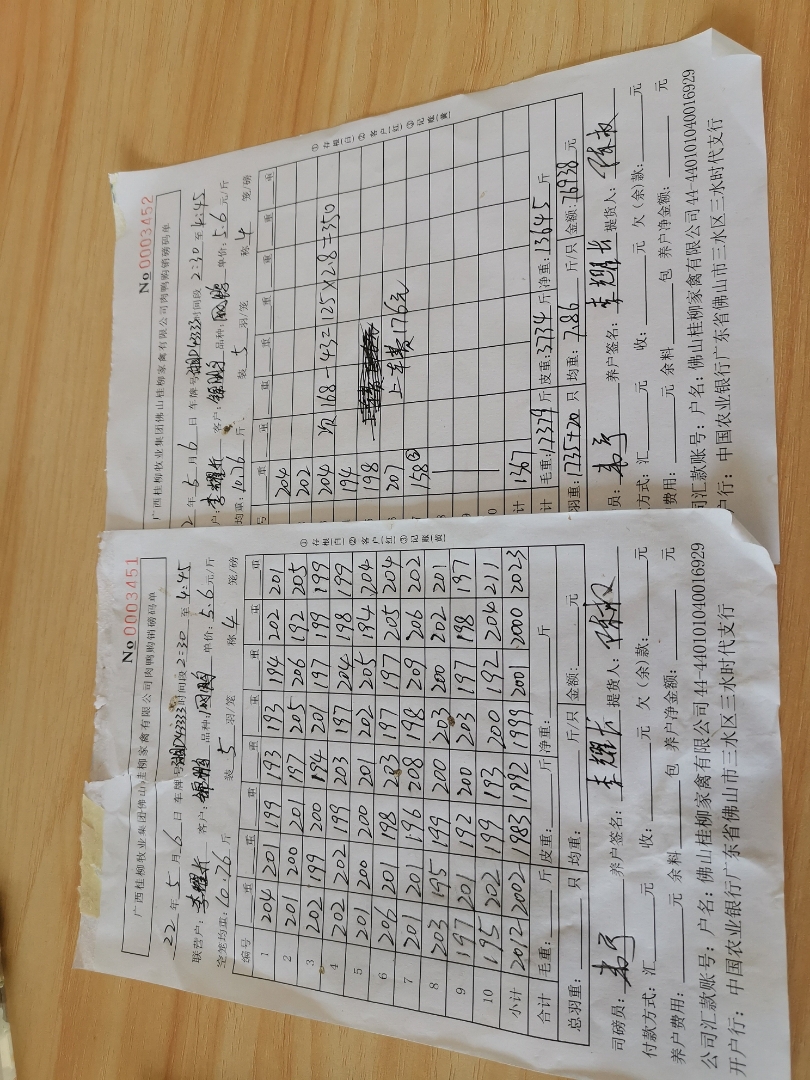 № 0003451
广西桂柳牧业集团佛山桂柳家禽有限公司肉鸭购销磅码单
22 年 5 月 6 日 车牌号 湘D43333 时间段 2:30 至 4:45
联营户: 李耀长 客户: 锦鹏 品种: 网鸭 单价: 5.6 元/斤
空笼均重: 10.76 斤 装 5 羽/笼 称 4 笼/磅
编号 重 重 重 重 重 重 重 重
1 204 201 199 193 193 194 202 201
2 201 200 201 197 205 206 192 205
3 202 199 200 194 201 197 199 199
4 202 202 199 203 197 204 198 199
5 201 200 200 201 202 205 194 204
6 206 201 198 203 197 197 205 204
7 201 201 196 208 198 209 206 202
8 203 195 199 200 203 200 202 201
9 197 201 192 200 203 197 198 197
10 195 202 199 193 200 192 204 211
小计 2012 2002 1983 1992 1999 2001 2000 2023
合计 毛重: 斤 皮重: 斤 净重: 斤
总羽重: 只 均重: 斤/只 金额: 元
司磅员: 养户签名: 李耀长 提货人:
付款方式: 汇 元 收: 元 欠(余)款: 元
养户费用: 元 余料 包 养户净金额: 元
公司汇款账号: 户名: 佛山桂柳家禽有限公司 44-440101040016929
开户行: 中国农业银行广东省佛山市三水区三水时代支行
①存根白 ②客户红 ③记账黄
№ 0003452
广西桂柳牧业集团佛山桂柳家禽有限公司肉鸭购销磅码单
2 年 5 月 6 日 车牌号 湘D43333 时间段 2:30 至 4:45
户: 李耀长 客户: 锦鹏 品种: 网鸭 单价: 5.6 元/斤
均重: 10.76 斤 装 5 羽/笼 称 4 笼/磅
重 重 重 重 重 重 重 重
204
202
204 次168-43=125×2.8=350
194
198
207 上车费176元
158 ③
计 1367
计 毛重: 17379 斤 皮重: 3734 斤 净重: 13645 斤
羽重: 1735+20 只 均重: 7.86 斤/只 金额: 76938 元
员: 养户签名: 李耀长 提货人:
方式: 汇 元 收: 元 欠(余)款: 元
费用: 元 余料 包 养户净金额: 元
司汇款账号: 户名: 佛山桂柳家禽有限公司 44-440101040016929
户行: 中国农业银行广东省佛山市三水区三水时代支行
①存根白 ②客户红 ③记账黄